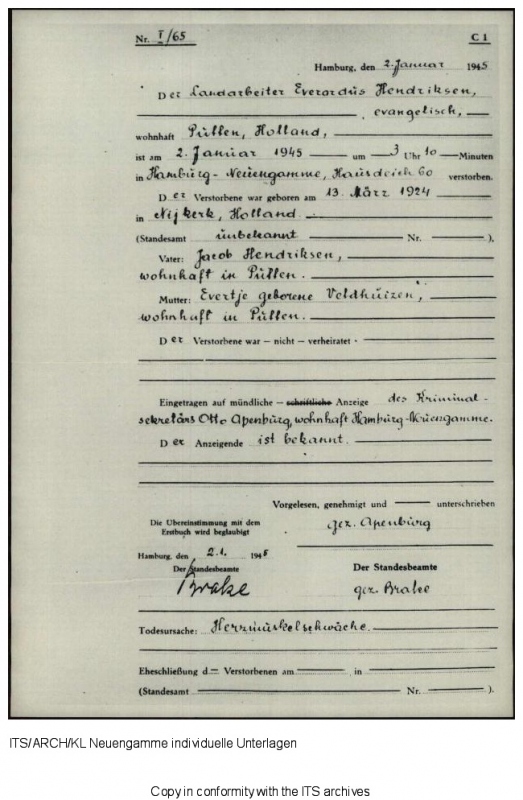 Nr. I/65 C 1
Hamburg, den 2. Januar 1945
Der Landarbeiter Everardus Hendriksen,
evangelisch,
wohnhaft Pütten, Holland,
ist am 2. Januar 1945 um 3 Uhr 10 Minuten
in Hamburg-Neuengamme, Hausdeich 60 verstorben.
Der Verstorbene war geboren am 13. März 1924
in Nijkerk, Holland.
(Standesamt ünbekannt Nr. ).
Vater: Jacob Hendriksen,
wohnhaft in Pütten.
Mutter: Evertje geborene Veldhüizen,
wohnhaft in Pütten.
Der Verstorbene war – nicht – verheiratet
Eingetragen auf mündliche – schriftliche Anzeige des Kriminal-
sekretärs Otto Apenbürg, wohnhaft Hamburg-Neuengamme.
Der Anzeigende ist bekannt.
Vorgelesen, genehmigt und unterschrieben
Die Übereinstimmung mit dem
Erstbuch wird beglaubigt
gez. Apenbürg
Hamburg, den 2.1. 1945
Der Standesbeamte Der Standesbeamte
Brake gez. Brake
Todesursache: Herzmüskelschwäche.
Eheschließung d Verstorbenen am in
(Standesamt Nr. ).
ITS/ARCH/KL Neuengamme individuelle Unterlagen
Copy in conformity with the ITS archives